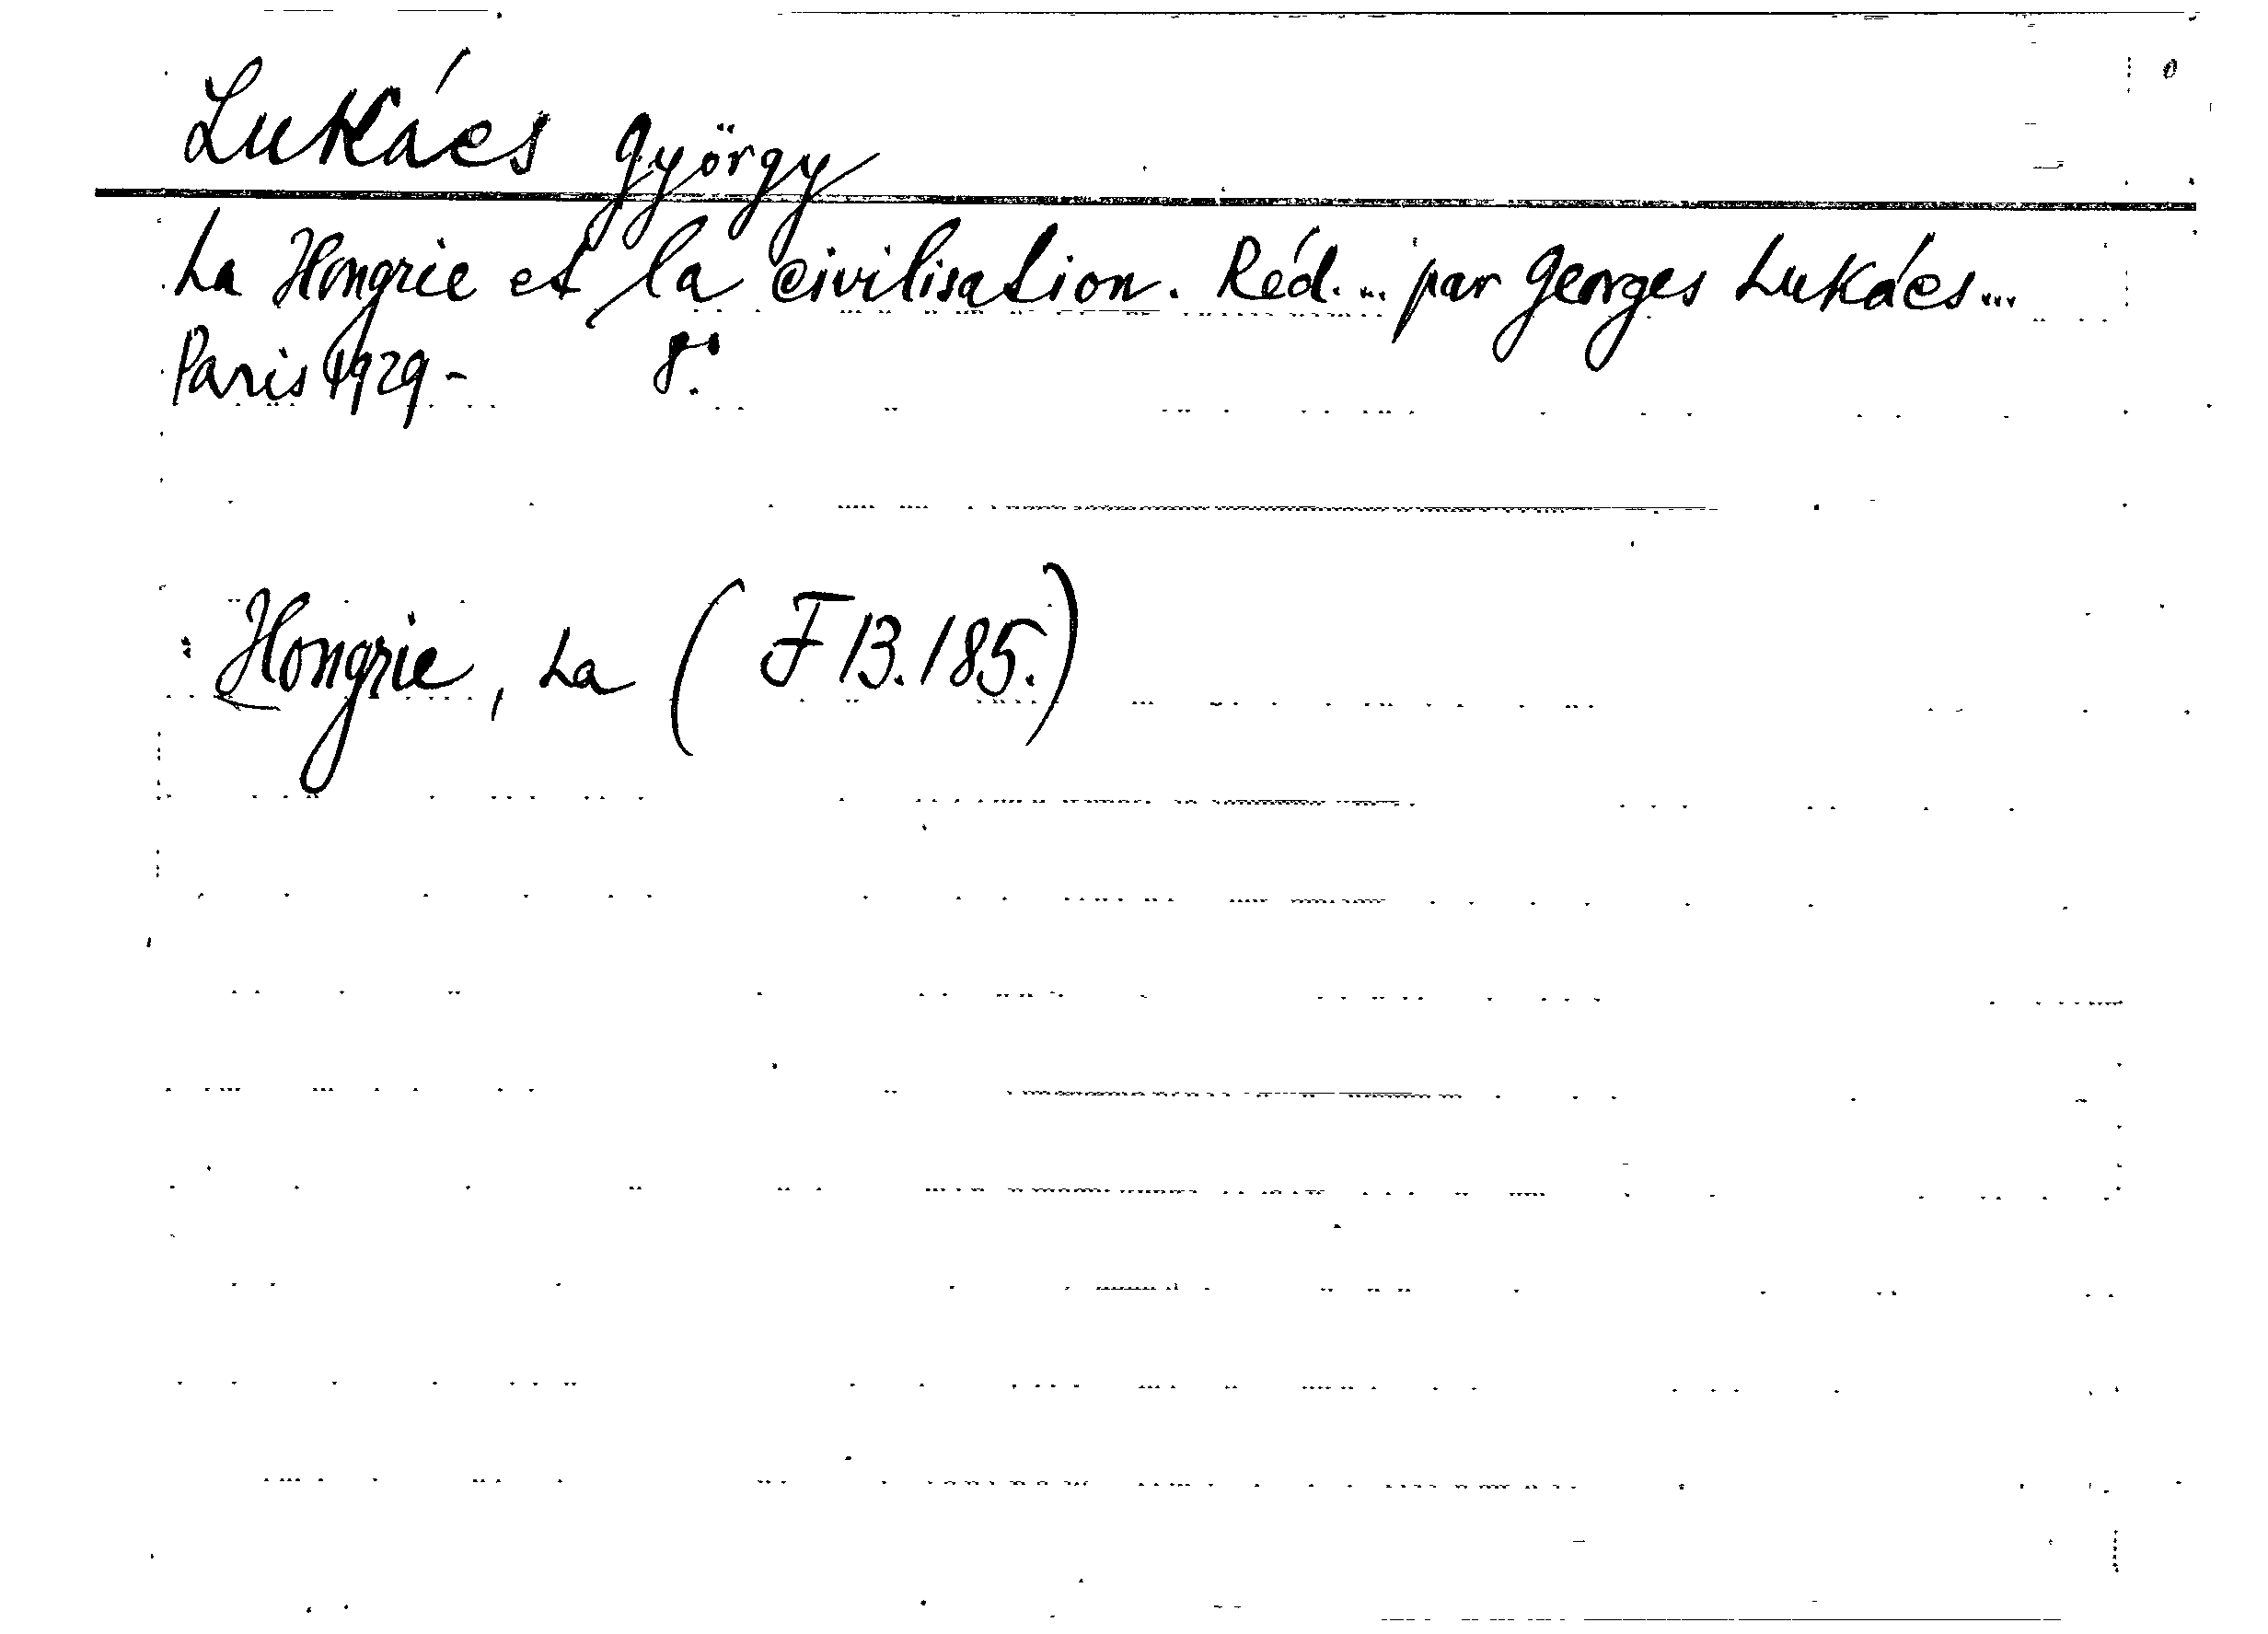 Lukács György
La Hongrie et la civilisation. Réd. ... par Georges Lukács ...
Paris 1929- 8°.
Hongrie, La (F 13.185.)